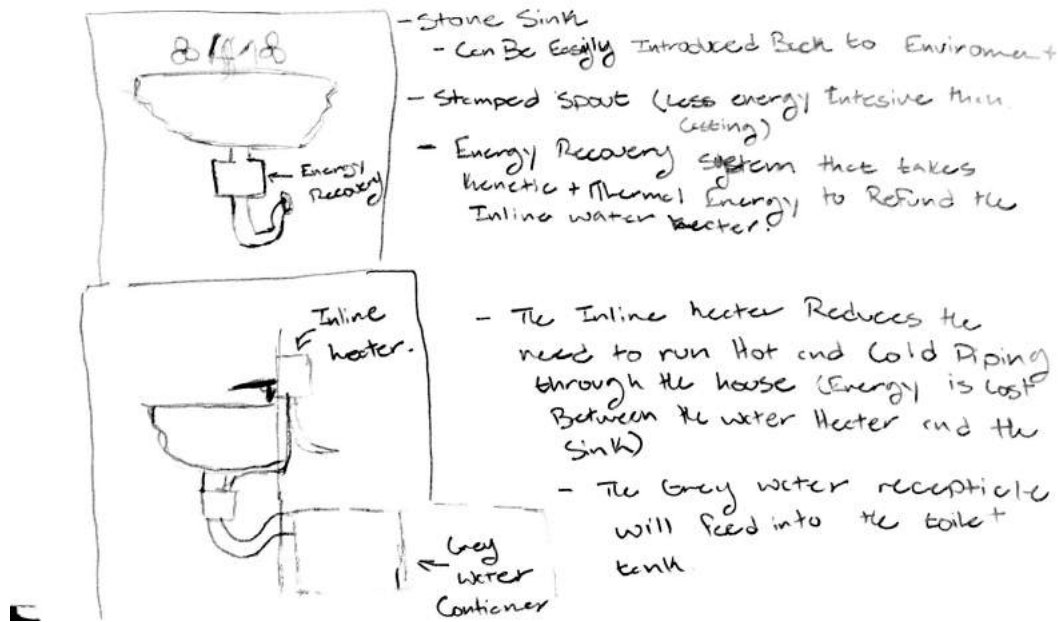 - Stone Sink
- Can Be Easily Introduced Back to Enviroment
- Stamped Spout (Less energy Intesive than
Casting)
- Energy Recovery System that takes
Kenetic + Thermal Energy to Refund the
Inline water heater.
Energy
Recovery
Inline
heater.
- The Inline heater Reduces the
need to run Hot and Cold Piping
through the house (Energy is Lost
Between the water Heater and the
Sink)
- The Grey water recepticle
will feed into the toilet
tank
Grey
Water
Contianer